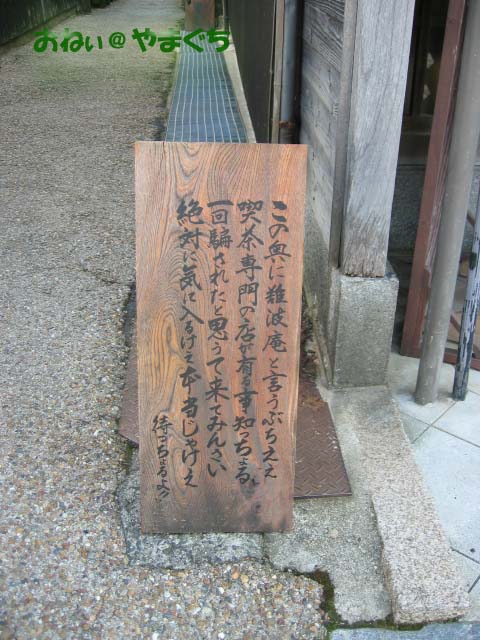 おねぃ@やまぐち
この奥に難波庵と言うぶちええ
喫茶専門の店が有る事知っちょる
一回騙されたと思うて来てみんさい
絶対に気に入るけえ本当じゃけえ
待っちょるよ